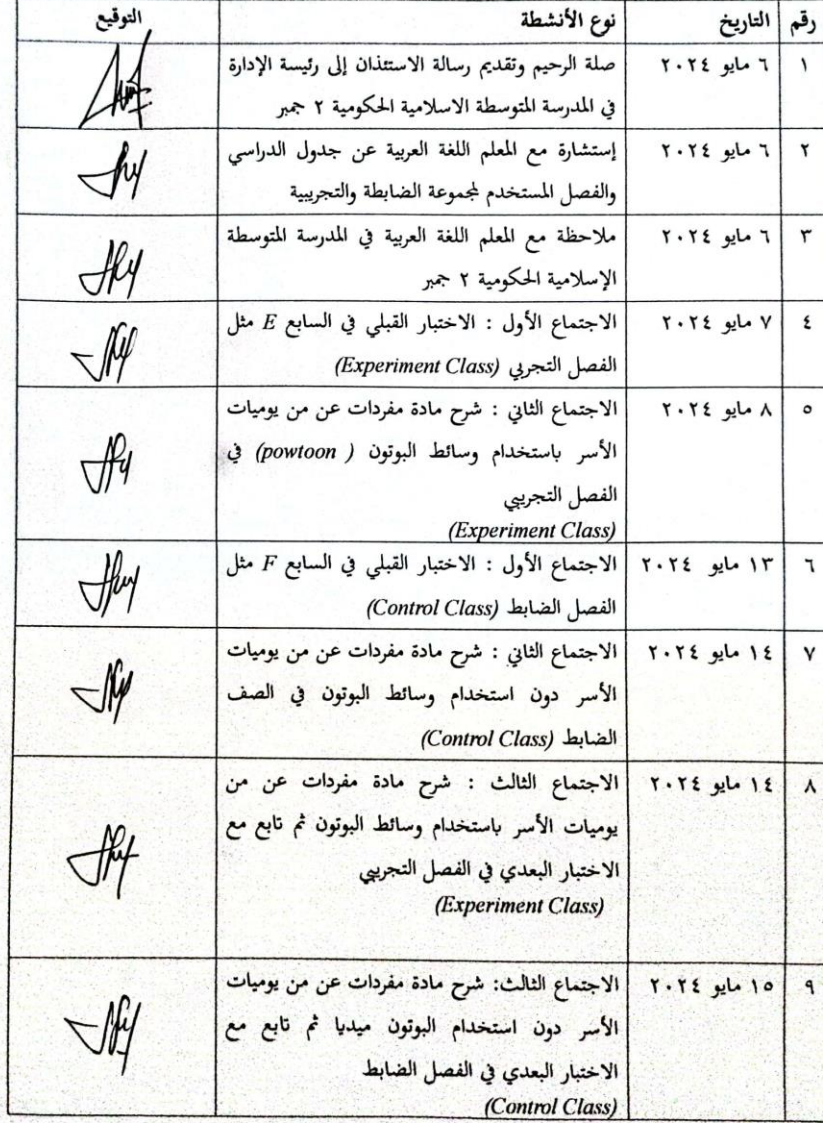 رقم التاريخ نوع الأنشطة التوقيع
١ ٦ مايو ٢٠٢٤ صلة الرحيم وتقديم رسالة الاستئذان إلى رئيسة الإدارة
في المدرسة المتوسطة الاسلامية الحكومية ٢ جمبر
٢ ٦ مايو ٢٠٢٤ إستشارة مع المعلم اللغة العربية عن جدول الدراسي
والفصل المستخدم لمجموعة الضابطة والتجريبية
٣ ٦ مايو ٢٠٢٤ ملاحظة مع المعلم اللغة العربية في المدرسة المتوسطة
الإسلامية الحكومية ٢ جمبر
٤ ٧ مايو ٢٠٢٤ الاجتماع الأول : الاختبار القبلي في السابع E مثل
الفصل التجربي (Experiment Class)
٥ ٨ مايو ٢٠٢٤ الاجتماع الثاني : شرح مادة مفردات عن من يوميات
الأسر باستخدام وسائط البوتون ( powtoon) في
الفصل التجريبي
(Experiment Class)
٦ ١٣ مايو ٢٠٢٤ الاجتماع الأول : الاختبار القبلي في السابع F مثل
الفصل الضابط (Control Class)
٧ ١٤ مايو ٢٠٢٤ الاجتماع الثاني : شرح مادة مفردات عن من يوميات
الأسر دون استخدام وسائط البوتون في الصف
الضابط (Control Class)
٨ ١٤ مايو ٢٠٢٤ الاجتماع الثالث : شرح مادة مفردات عن من
يوميات الأسر باستخدام وسائط البوتون ثم تابع مع
الاختبار البعدي في الفصل التجريبي
(Experiment Class)
٩ ١٥ مايو ٢٠٢٤ الاجتماع الثالث: شرح مادة مفردات عن من يوميات
الأسر دون استخدام البوتون ميديا ثم تابع مع
الاختبار البعدي في الفصل الضابط
(Control Class)